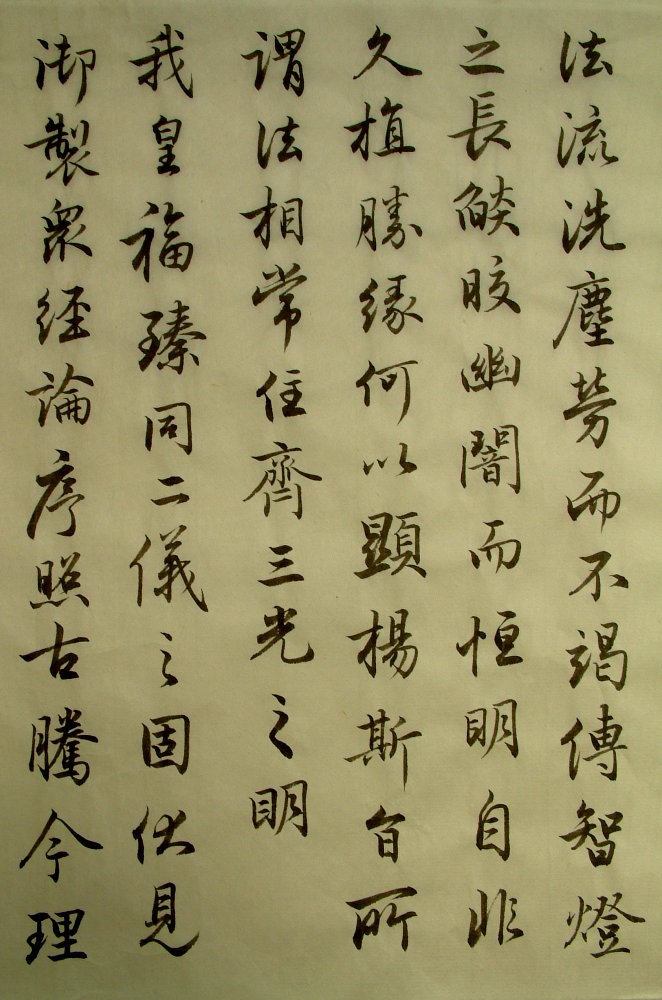 法流洗塵勞而不竭傳智燈
之長燄皎幽闇而恒明自非
久植勝緣何以顯楊斯旨所
謂法相常住齊三光之明
我皇福臻同二儀之固伏見
御製眾經論序照古騰今理